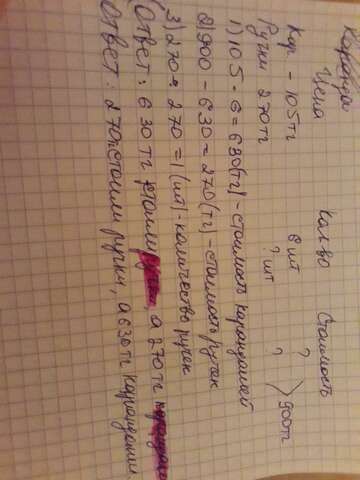 Карандаш
Цена Кол-во Стоимость
Кар - 105тг 6 шт ?
Ручки 270тг ? шт ? 900тг
1) 105 · 6 = 630 (тг) - стоимость карандашей
2) 900 - 630 = 270 (тг) - стоимость ручек
3) 270 : 270 = 1 (шт) - количество ручек
Ответ: 630 тг стоили ручки, а 270 тг карандаши
Ответ: 270тг стоили ручки, а 630тг карандаши.